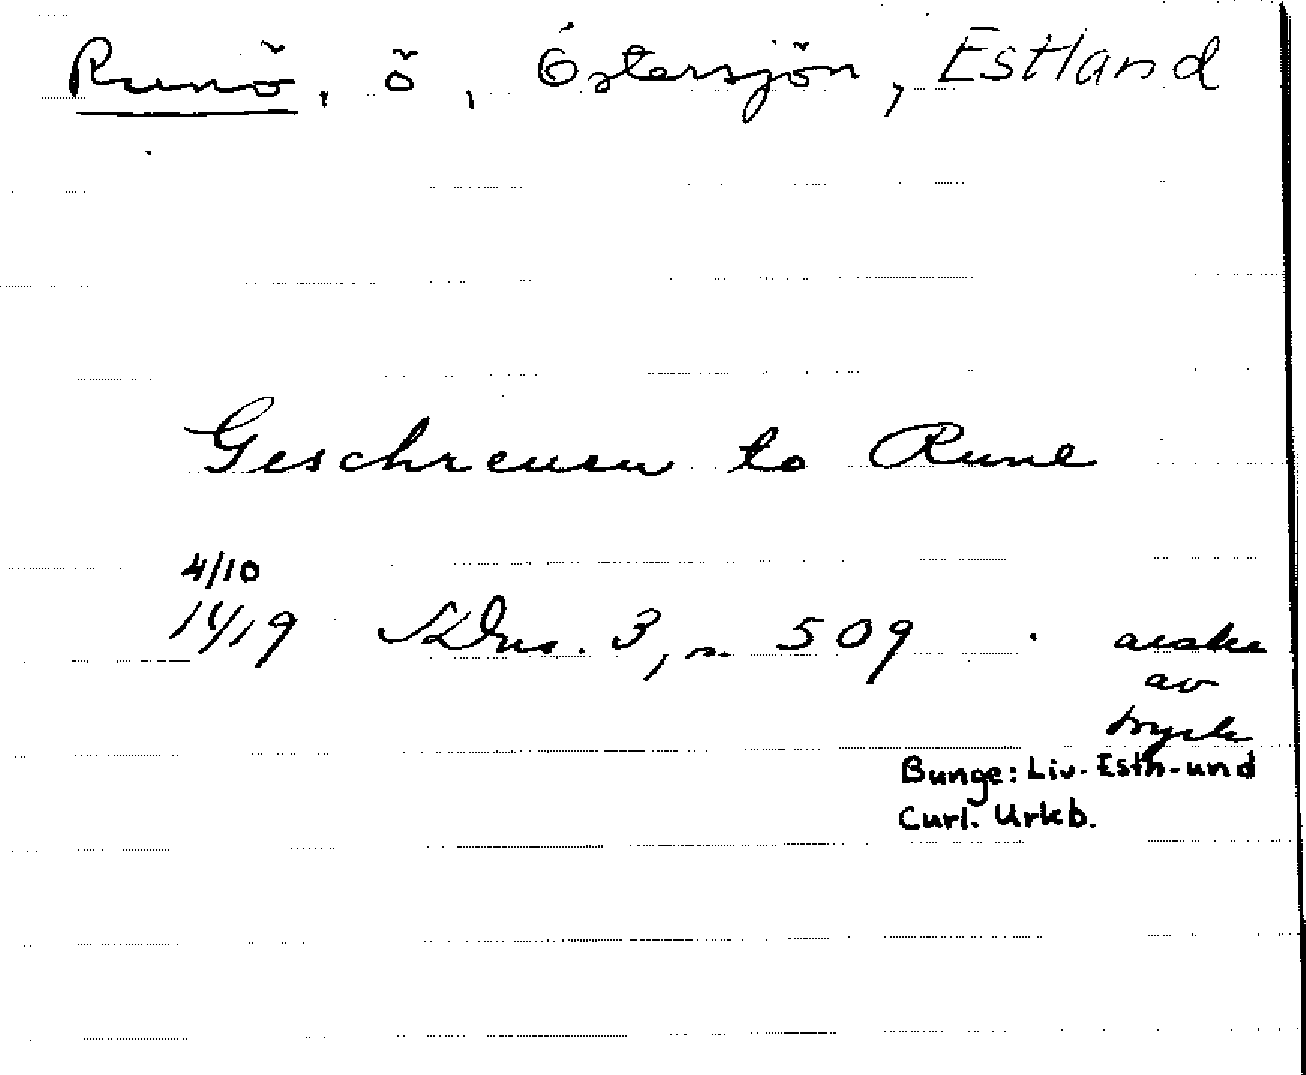 Runö, ö, Östersjön, Estland
Geschreuen to Rune
4/10
1419 SDns. 3, n. 509 avskr
av
tryck
Bunge: Liv- Esth-und
Curl. Urkb.